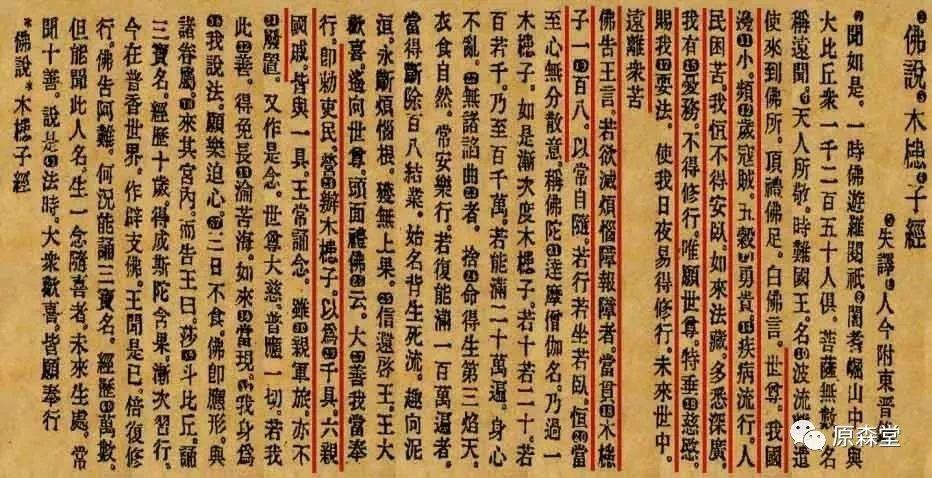 佛說木槵子經
失譯人今附東晉
聞如是。一時佛遊羅閱祇闍耆崛山中。與
大比丘眾一千二百五十人俱。菩薩無數。名
稱遠聞。天人所敬。時難國王。名波流離。遣
使來到佛所。頂禮佛足。白佛言。世尊。我國
邊⑪小。頻⑫歲寇賊。五穀⑬勇貴。⑭疾病流行。人
民困苦。我恒不得安臥。如來法藏。多悉深廣。
我有⑮憂務。不得修行。唯願世尊。特垂⑯慈愍。
賜我⑰要法。使我日夜易得修行。未來世中。
遠離眾苦
佛告王言。若欲滅煩惱障報障者。當貫⑱木槵
子一⑲百八。以常自隨。若行若坐若臥。恒⑳當
至心無分散意。稱佛陀㉑達摩僧伽名。乃過一
木槵子。如是漸次度木槵子。若十若二十。若
百若千。乃至百千萬。若能滿二十萬遍。身心
不亂。㉒無諸諂曲㉓者。捨㉔命得生第三焰天。
衣食自然。常安樂行。若復能滿一百萬遍者。
當得斷除百八結業。始名背生死流。趣向泥
洹。永斷煩惱根。獲無上果。㉕信還啓王。王大
歡喜。遙向世尊。頭面禮佛㉖云。大㉗善。我當奉
行。即勅吏民。營㉘辦木槵子。以為㉙千具。六親
國戚。皆與一具。王常誦念。雖㉚親軍旅。亦不
㉛廢置。又作是念。世尊大慈。普應一切。若我
此㉜善。得免長㉝淪苦海。如來㉞當現。㉟我身為
㊱我說法。願樂迫心。㊲三日不食。佛即應形。與
諸眷屬。㊳來其宮內。而告王曰。莎㊴斗比丘。誦
三寶名。經歷十歲。得成斯陀含果。漸次習行。
今在普香世界。作辟支佛。王聞是已。倍復修
行。佛告阿難。何況能誦三寶名。經歷萬數。
但能聞此人名。生一念隨喜者。未來生處。常
聞十善。說是法時。大眾歡喜。皆願奉行
佛說木槵子經
原森堂